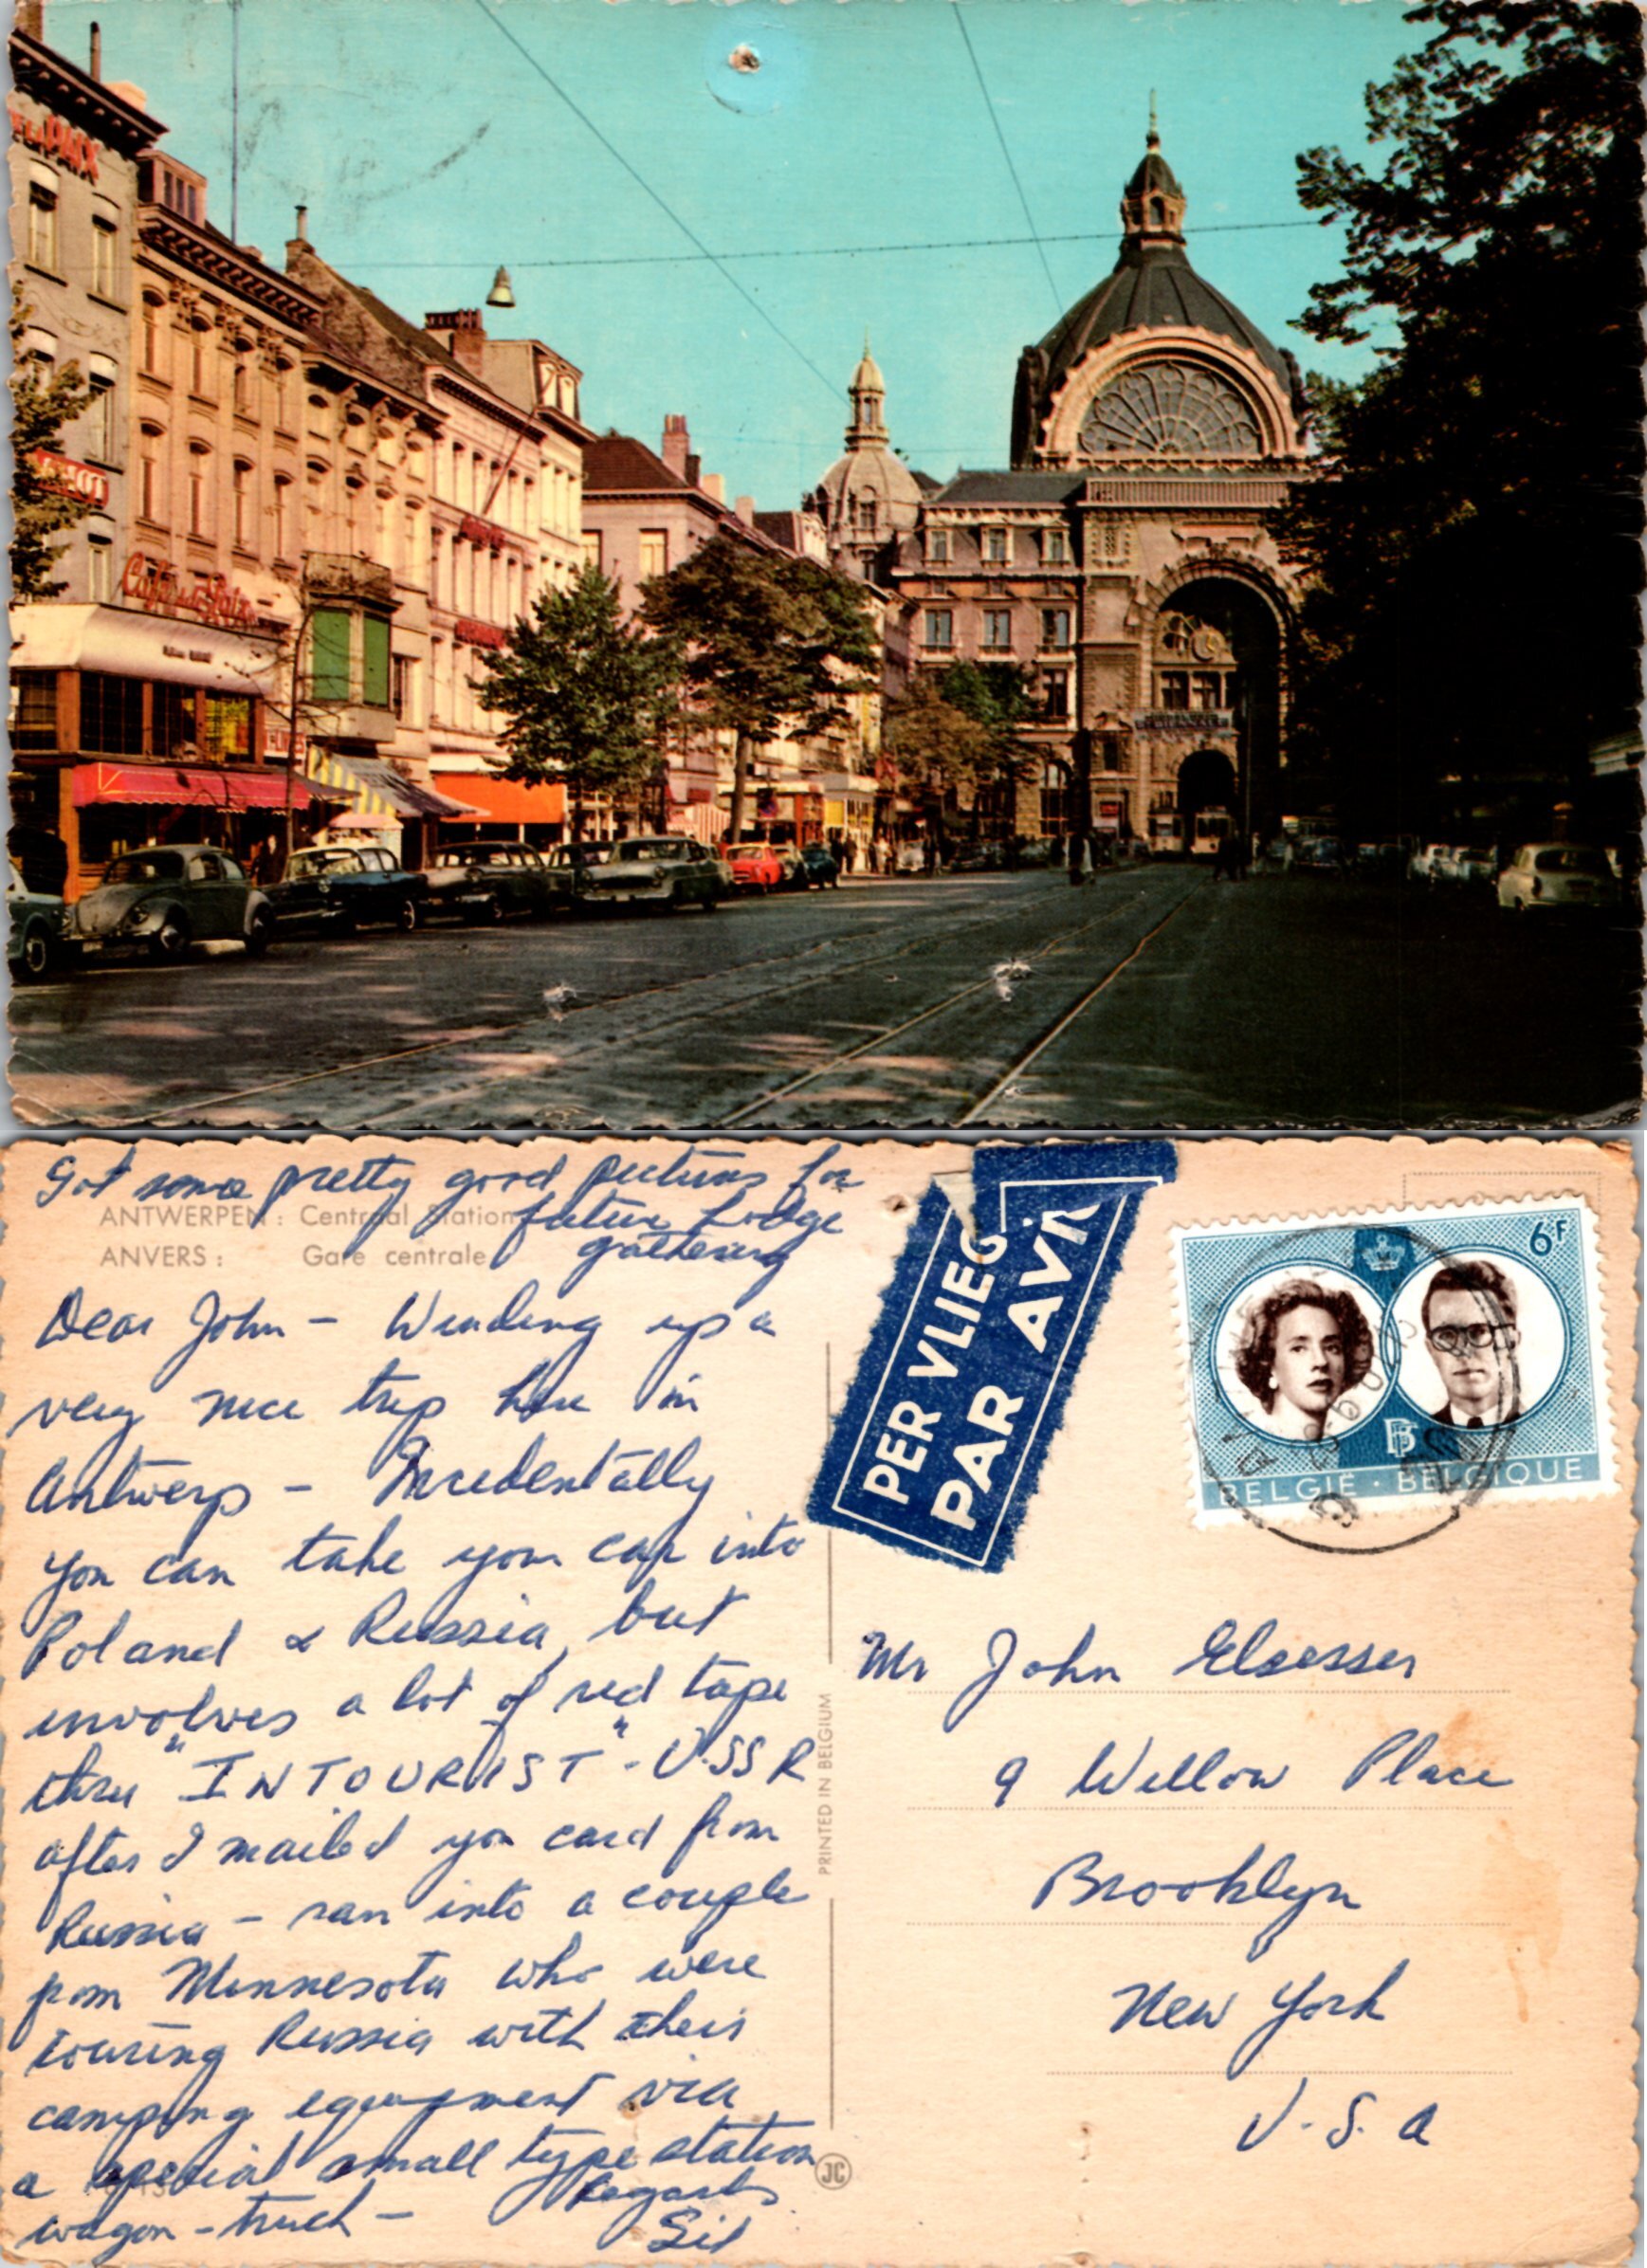 Café de la Paix
Got some pretty good pictures for
future Lodge
gathering
ANTWERPEN : Centraal Station
ANVERS : Gare centrale
Dear John - Winding up a
very nice trip here in
Antwerp - Incidentally
you can take your car into
Poland & Russia, but
involves a lot of red tape
thru "INTOURIST" - USSR
after I mailed you card from
Russia - ran into a couple
from Minnesota who were
touring Russia with their
camping equipment via
a special small type station
wagon - truck -
Regards
Sid
PRINTED IN BELGIUM
JC
PER VLIEG
PAR AVI
6F
BELGIE · BELGIQUE
Mr John Elsesser
9 Willow Place
Brooklyn
New York
U.S.A